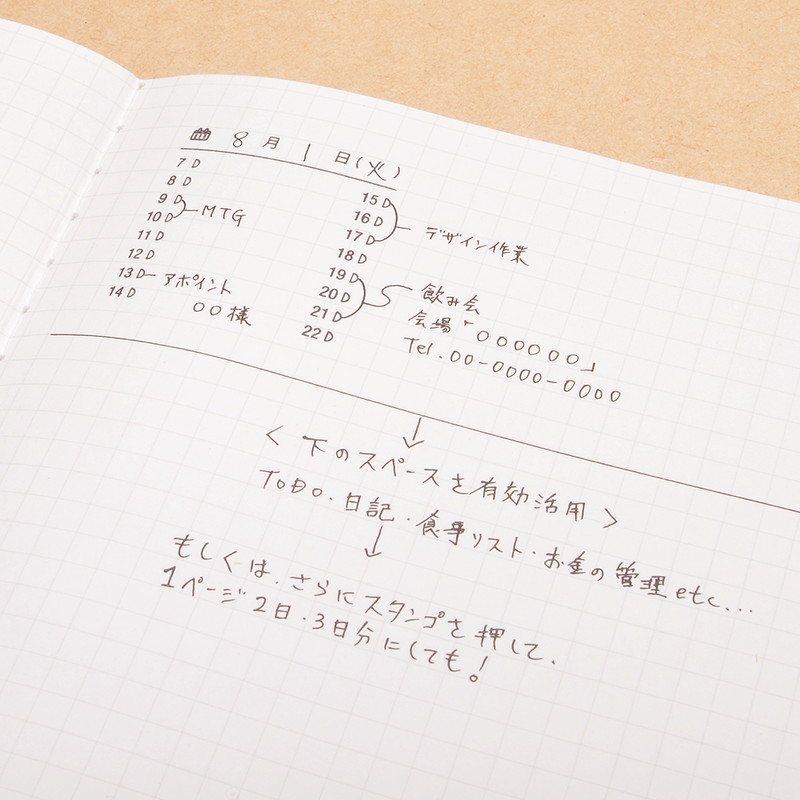 8月1日(火)
7
8
9
10 MTG
11
12
13 アポイント
14 〇〇様
15
16
17 デザイン作業
18
19
20 飲み会
21 会場「〇〇〇〇〇〇」
22 Tel.00-0000-0000
<下のスペースを有効活用>
TODO・日記・食事リスト・お金の管理etc...
もしくは、さらにスタンプを押して、
1ページ2日・3日分にしても!